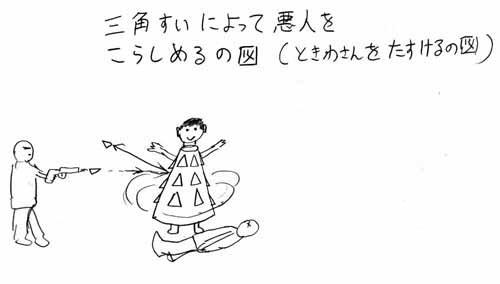 三角すいによって悪人を
こらしめるの図 (ときわさんをたすけるの図)